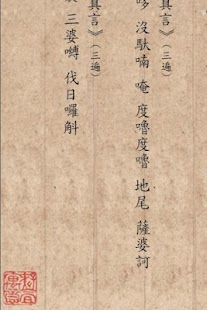 哆 沒馱喃 唵 度嚕度嚕 地尾 薩婆訶
真言》（三遍）
三婆嚩 伐日囉斛
真言》（三遍）